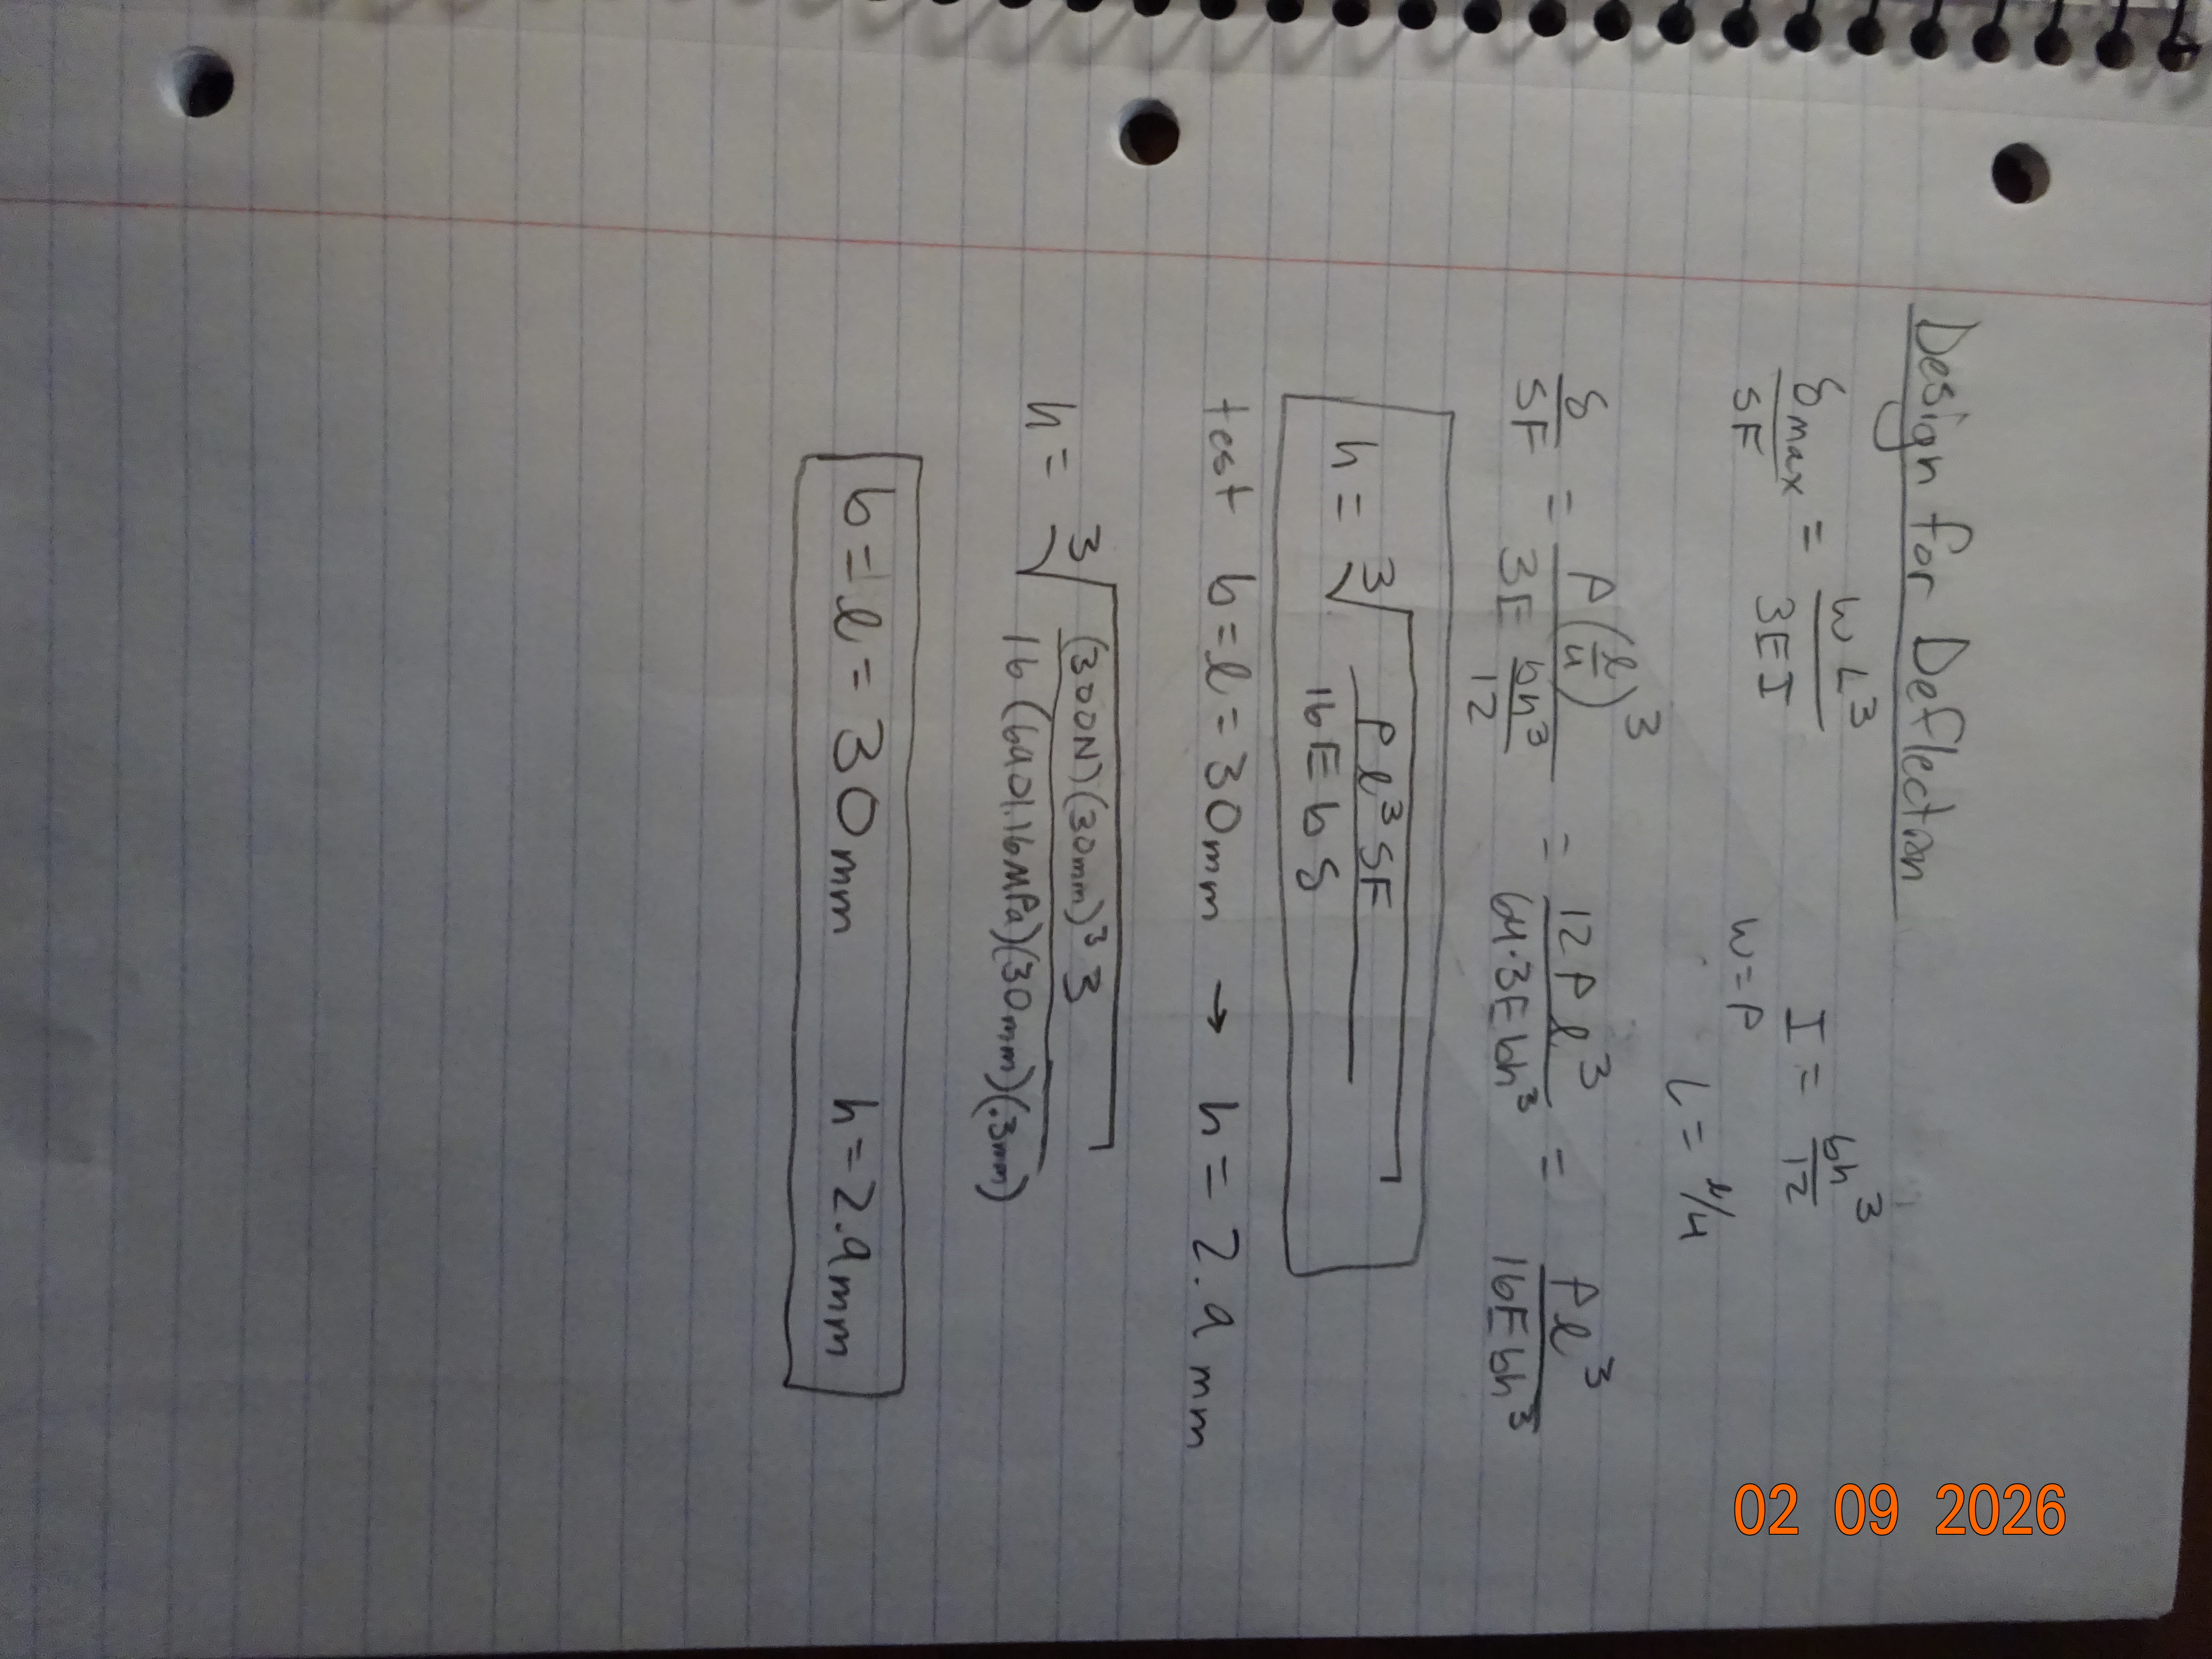 Design for Deflection
δmax/SF = wL³/3EI    I = bh³/12
w=P
L = ℓ/4
δ/SF = P(ℓ/4)³/(3E bh³/12) = 12Pℓ³/(64·3Ebh³) = Pℓ³/(16Ebh³)
h = ³√(Pℓ³SF/(16Ebδ))
test b=ℓ=30mm → h = 2.9mm
h = ³√((300N)(30mm)³3/(16(6401.16MPa)(30mm)(.3mm)))
b=ℓ=30mm    h=2.9mm
02 09 2026